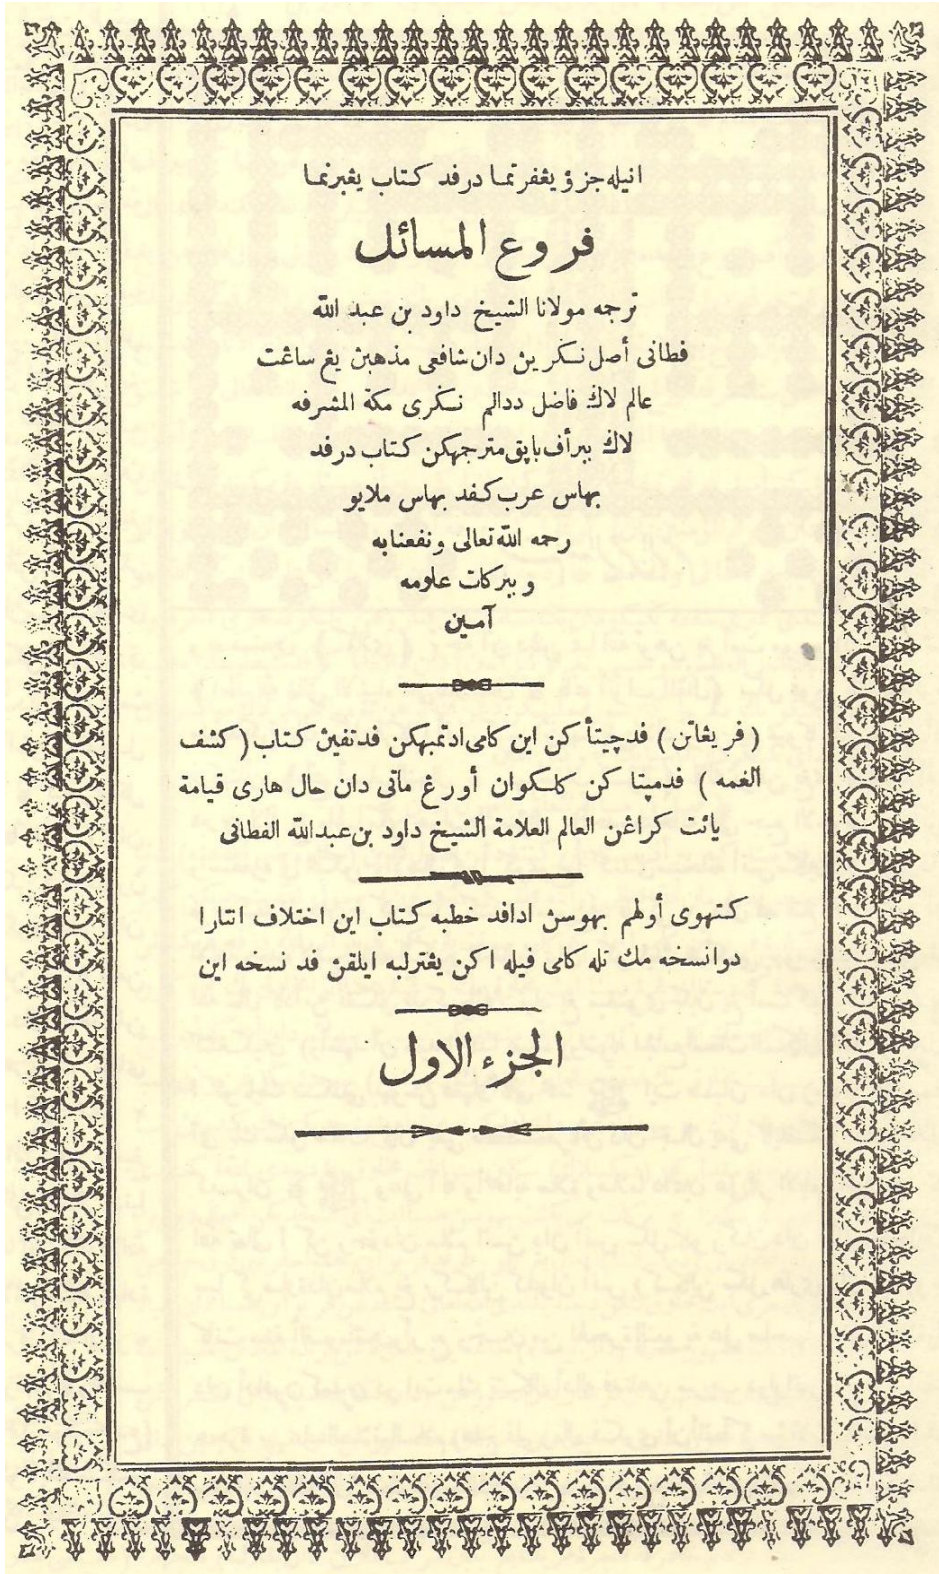 انيله جزؤ يڠفرتما درفد كتاب يڠبرنما
فروع المسائل
ترجمه مولانا الشيخ داود بن عبد الله
فطانى أصل نكرين دان شافعى مذهبن يڠ ساڠت
عالم لاݢ فاضل ددالم نكرى مكة المشرفه
لاݢ ببرأف باپق مترجهكن كتاب درفد
بهاس عرب كفد بهاس ملايو
رحمه الله تعالى ونفعنابه
وببركات علومه
آمين
( فريڠاتن ) فدچيتأكن اين كامى ادتمبهكن فدتفين كتاب ( كشف
الغمه ) فدمپتاكن كلكوان أورڠ ماتى دان حال هارى قيامة
يائت كراڠن العالم العلامة الشيخ داود بن عبدالله الفطانى
كتهوى أولهم بهوسن ادافد خطبه كتاب اين اختلاف انتارا
دوانسخه مك تله كامى فيله اكن يڠترلبه ايلقن فد نسخه اين
الجزء الاول